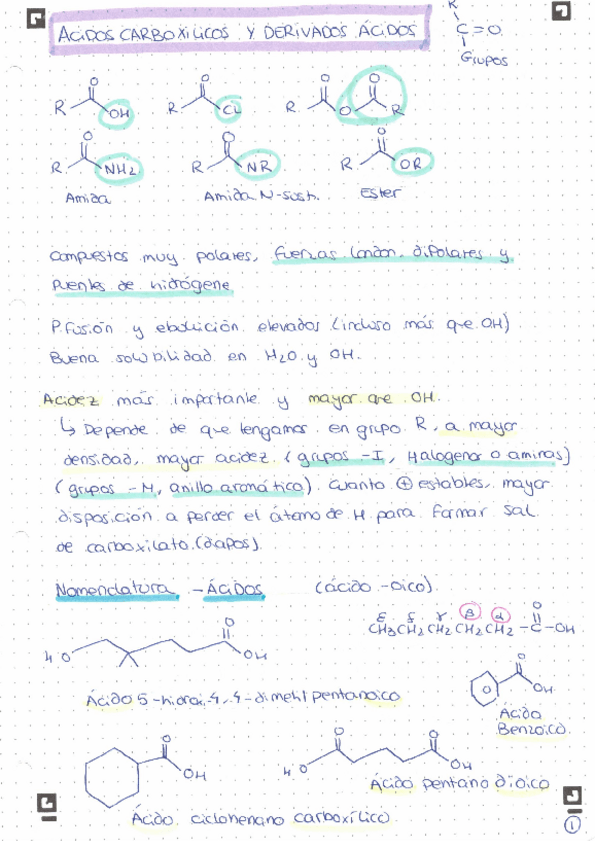 ÁCIDOS CARBOXILICOS Y DERIVADOS ÁCIDOS
R
C=O
Grupos
O O O O
R OH R CL R O R
O O O
R NH2 R NR R OR
Amida Amida N-sust. Ester
Compuestos muy polares, fuerzas London, dipolares y
puentes de hidrógeno
P. fusión y ebullición elevados (incluso más que OH)
Buena solubilidad en H2O y OH.
Acidez más importante y mayor que OH.
↳ Depende de que tengamos en grupo R, a mayor
densidad, mayor acidez (grupos -I, Halogenos o aminas)
(grupos -M, anillo aromático). Cuanto ⊕ estables, mayor
disposición a perder el átomo de H para formar sal
de carboxilato. (diapos).
Nomenclatura - ÁCIDOS (ácido -oico).
ε δ γ β α O
CH3CH2CH2CH2CH2-C-OH
O
HO OH
Ácido 5-hidroxi-4,4-dimetil pentanoico
O
OH
Ácido
Benzoico.
O
OH
O O
HO OH
Ácido pentanodioico
Ácido ciclohexano carboxílico
1